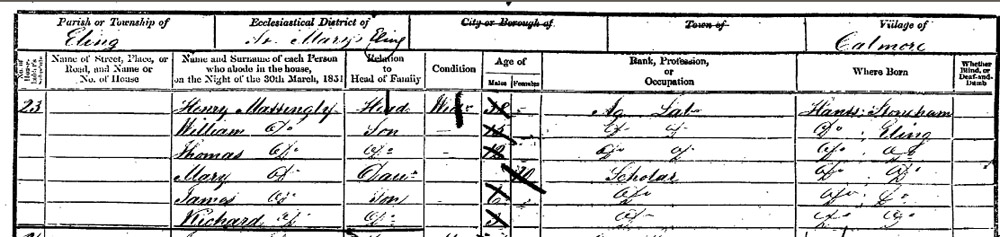 Parish or Township of Ecclesiastical District of City or Borough of Town of Village of
Eling St. Mary's Eling Calmore
No. of Householder's Schedule Name of Street, Place, or Road, and Name or No. of House Name and Surname of each Person who abode in the house, on the Night of the 30th March, 1851 Relation to Head of Family Condition Age of Males Females Rank, Profession, or Occupation Where Born Whether Blind, or Deaf-and-Dumb
23 Henry Massingly Head Widr 38 - Ag Lab Hants; Stoneham
William Do Son - Do Do Do; Eling
Thomas Do Do - 12 Do Do Do; Do
Mary Do Daur 10 Scholar Do; Do
James Do Son - 6 Do Do; Do
Richard Do Do - Do Do Do